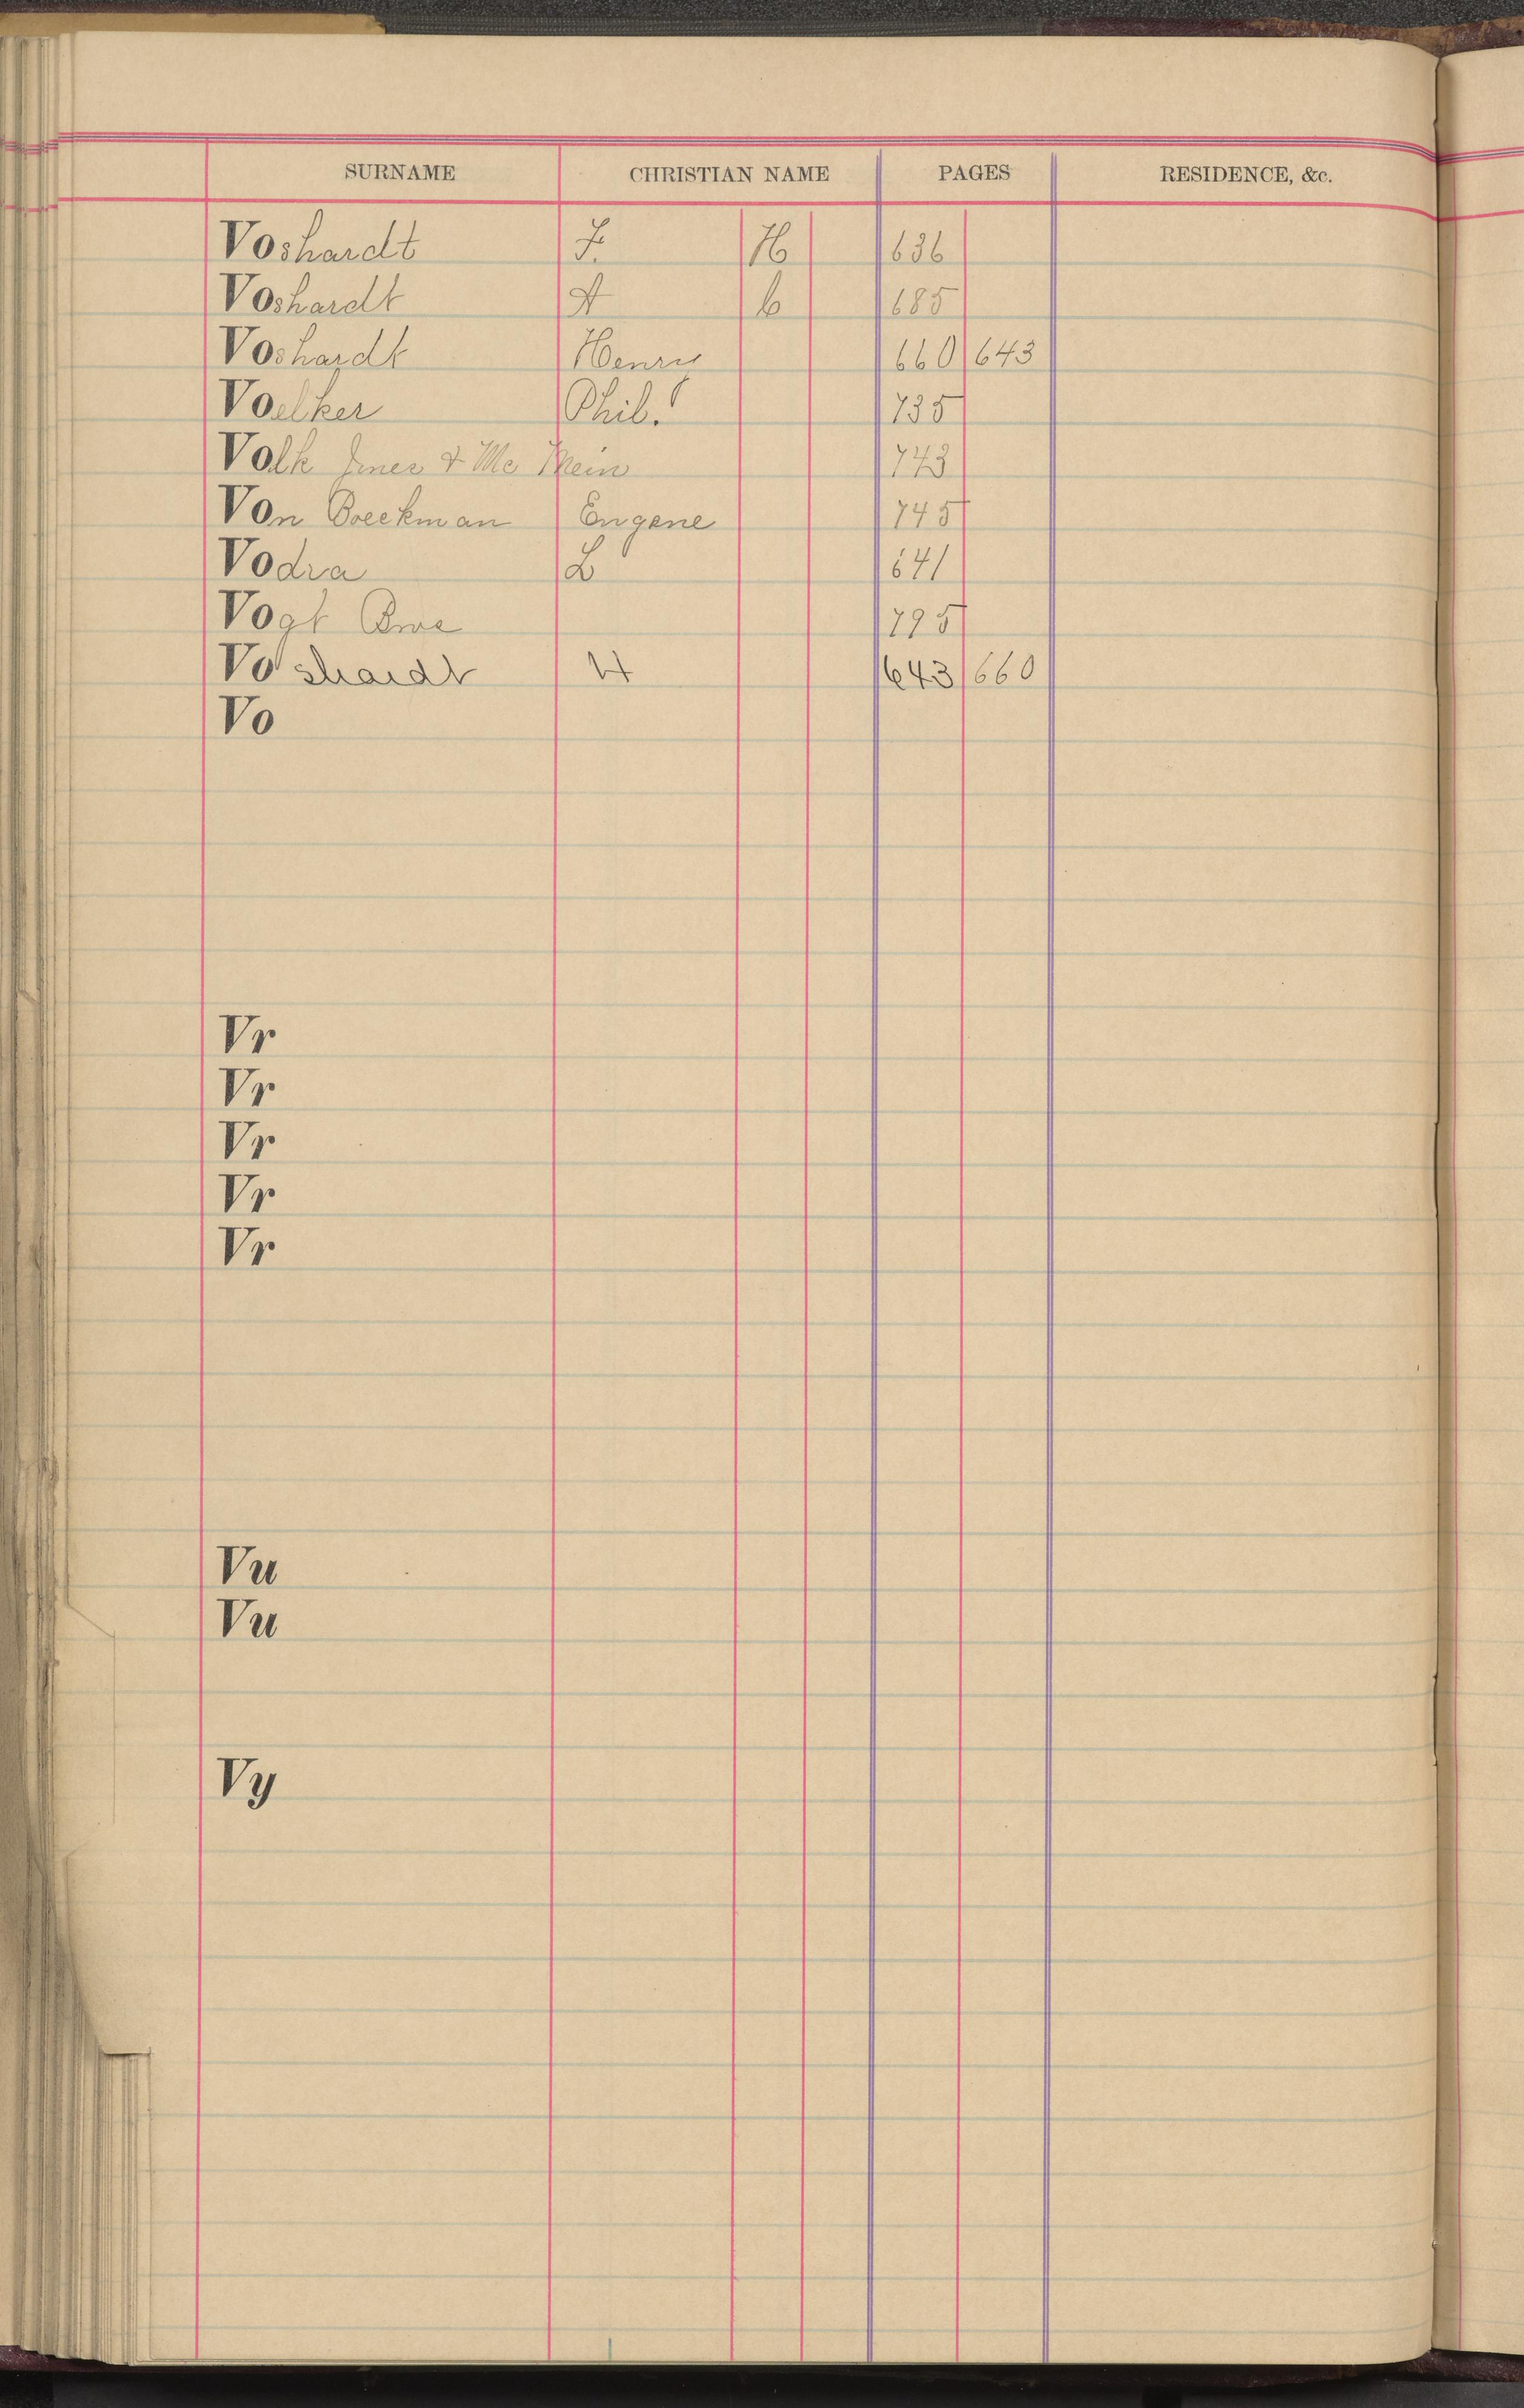 SURNAME CHRISTIAN NAME PAGES RESIDENCE, &c.
Voshardt F. H 636
Voshardt A 6 685
Voshardt Henry 660 643
Voelker Phil. 735
Volk Jones & Mc Mein 743
Von Boeckman Eugene 745
Vodra L 641
Vogt 795
Voshardt H 643 660
Vo
Vr
Vr
Vr
Vr
Vr
Vu
Vu
Vy